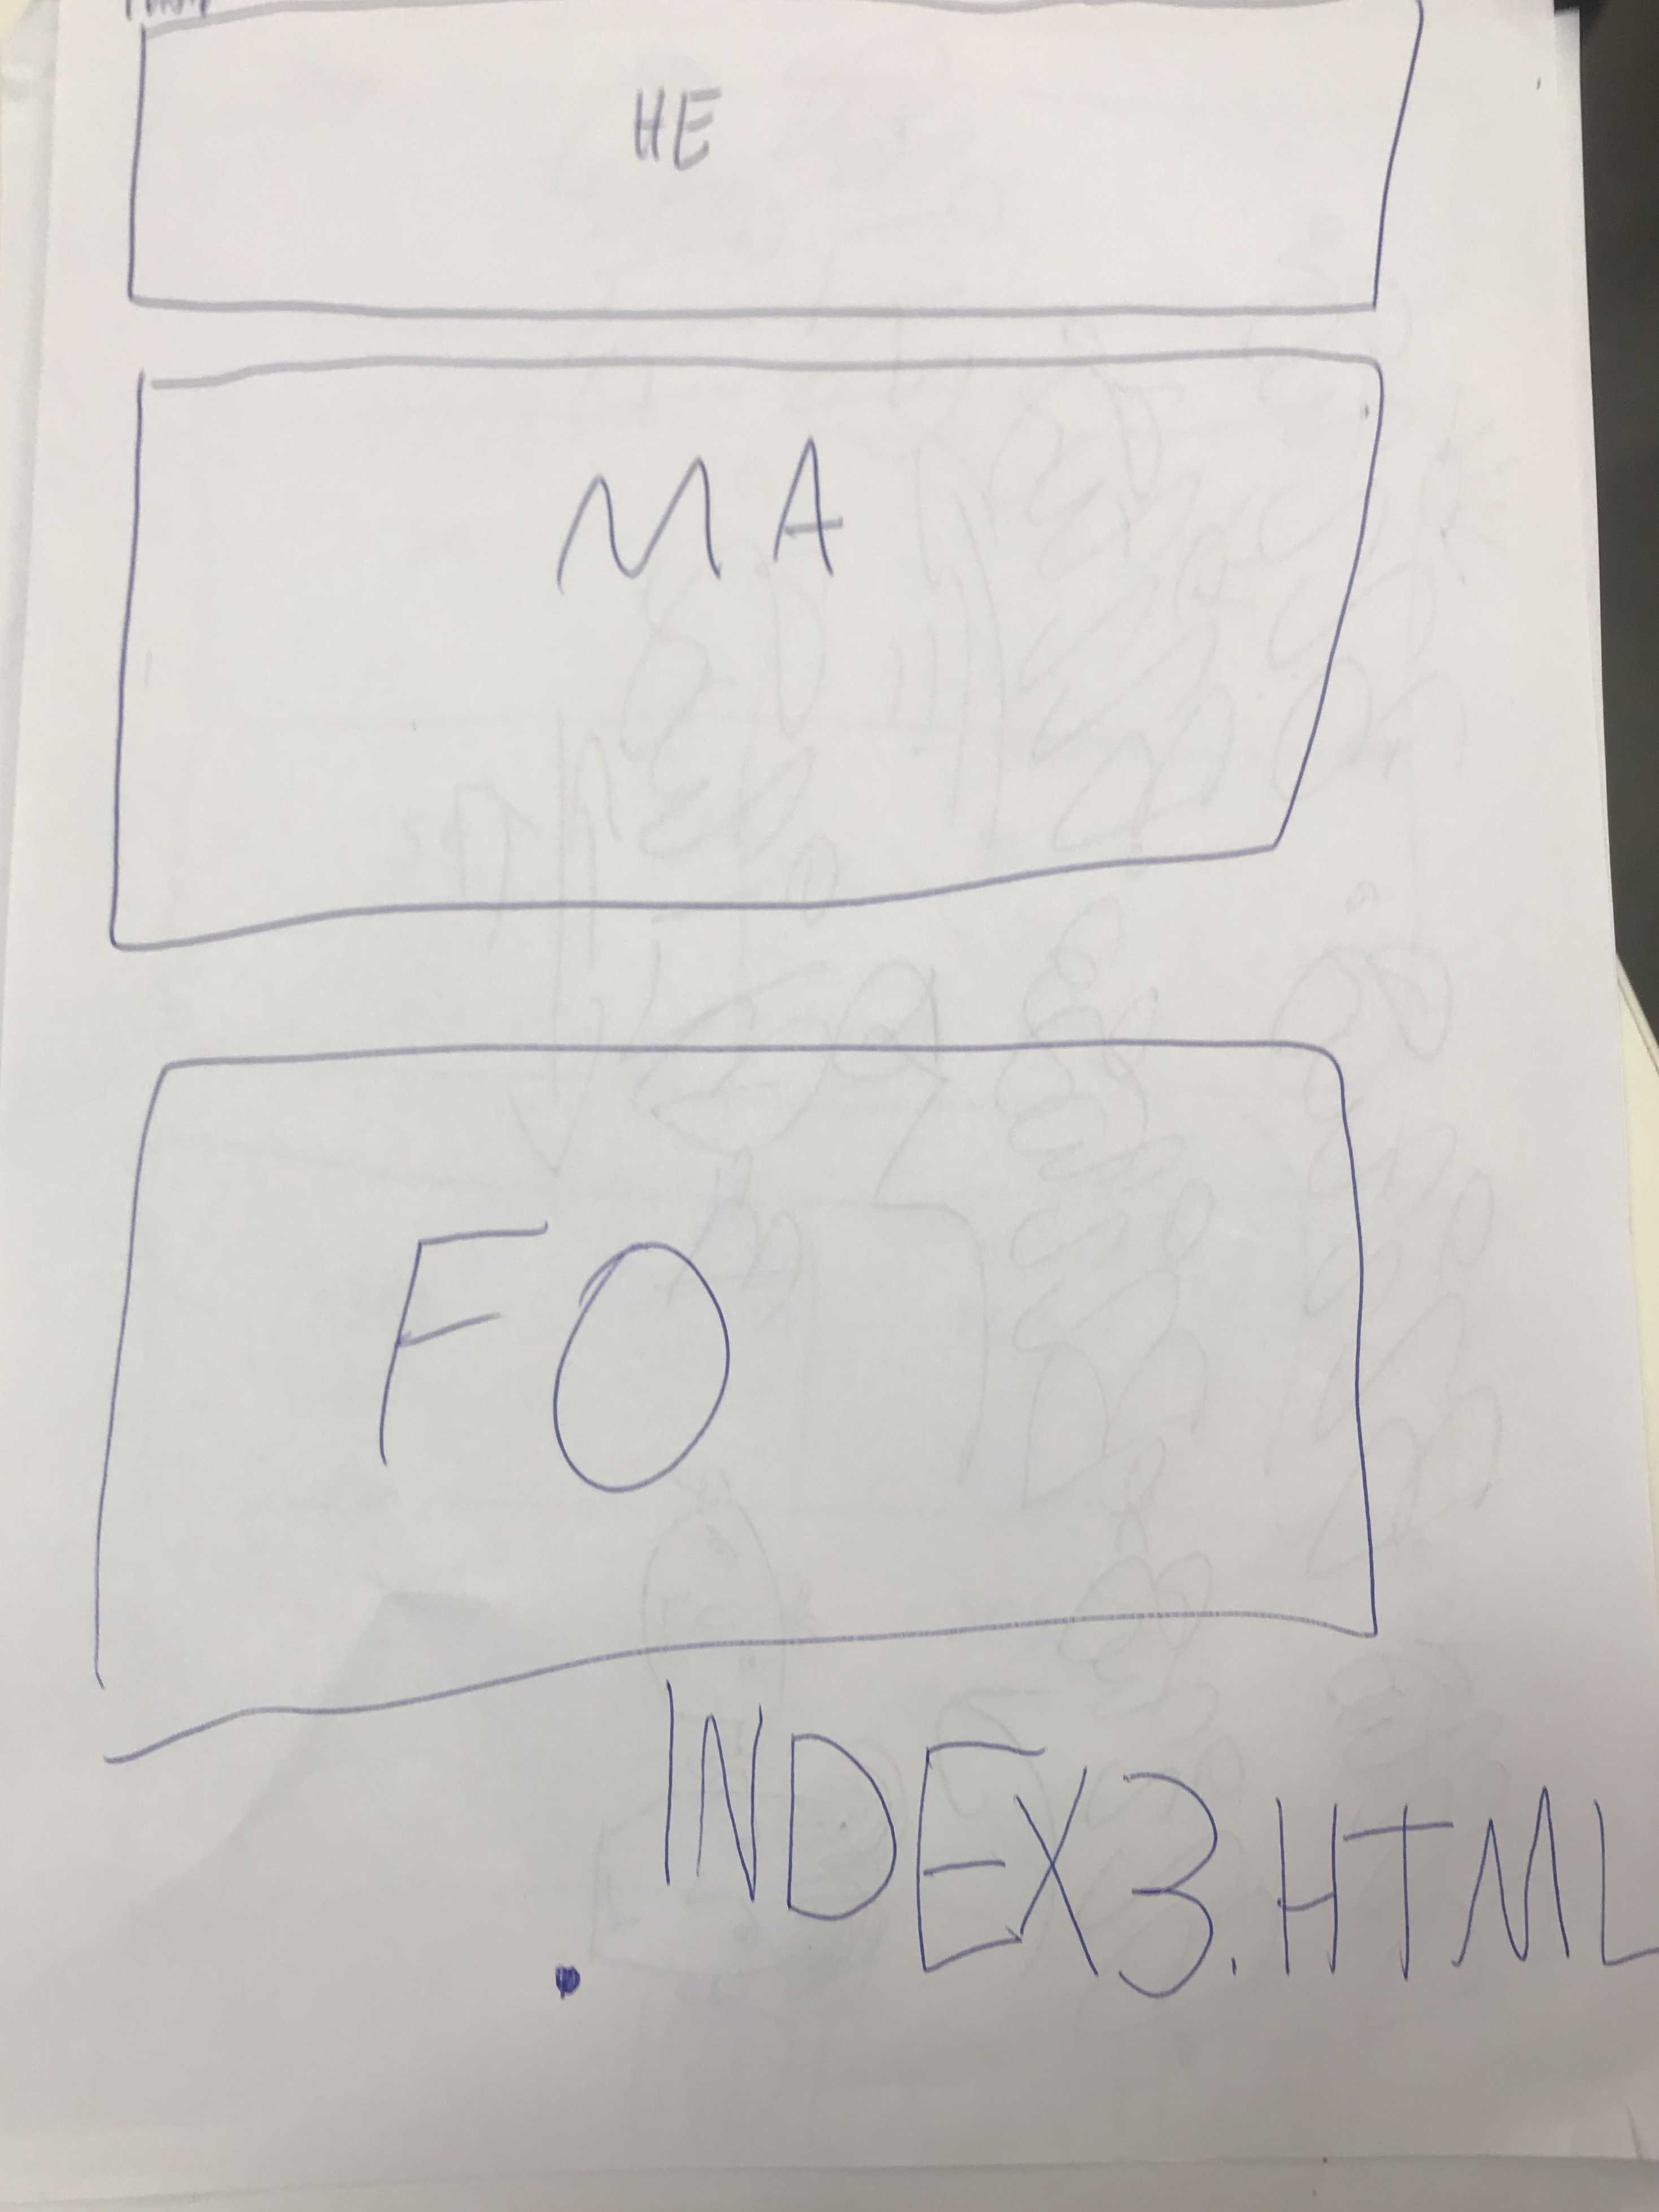 HE
MA
FO
INDEX3.HTML